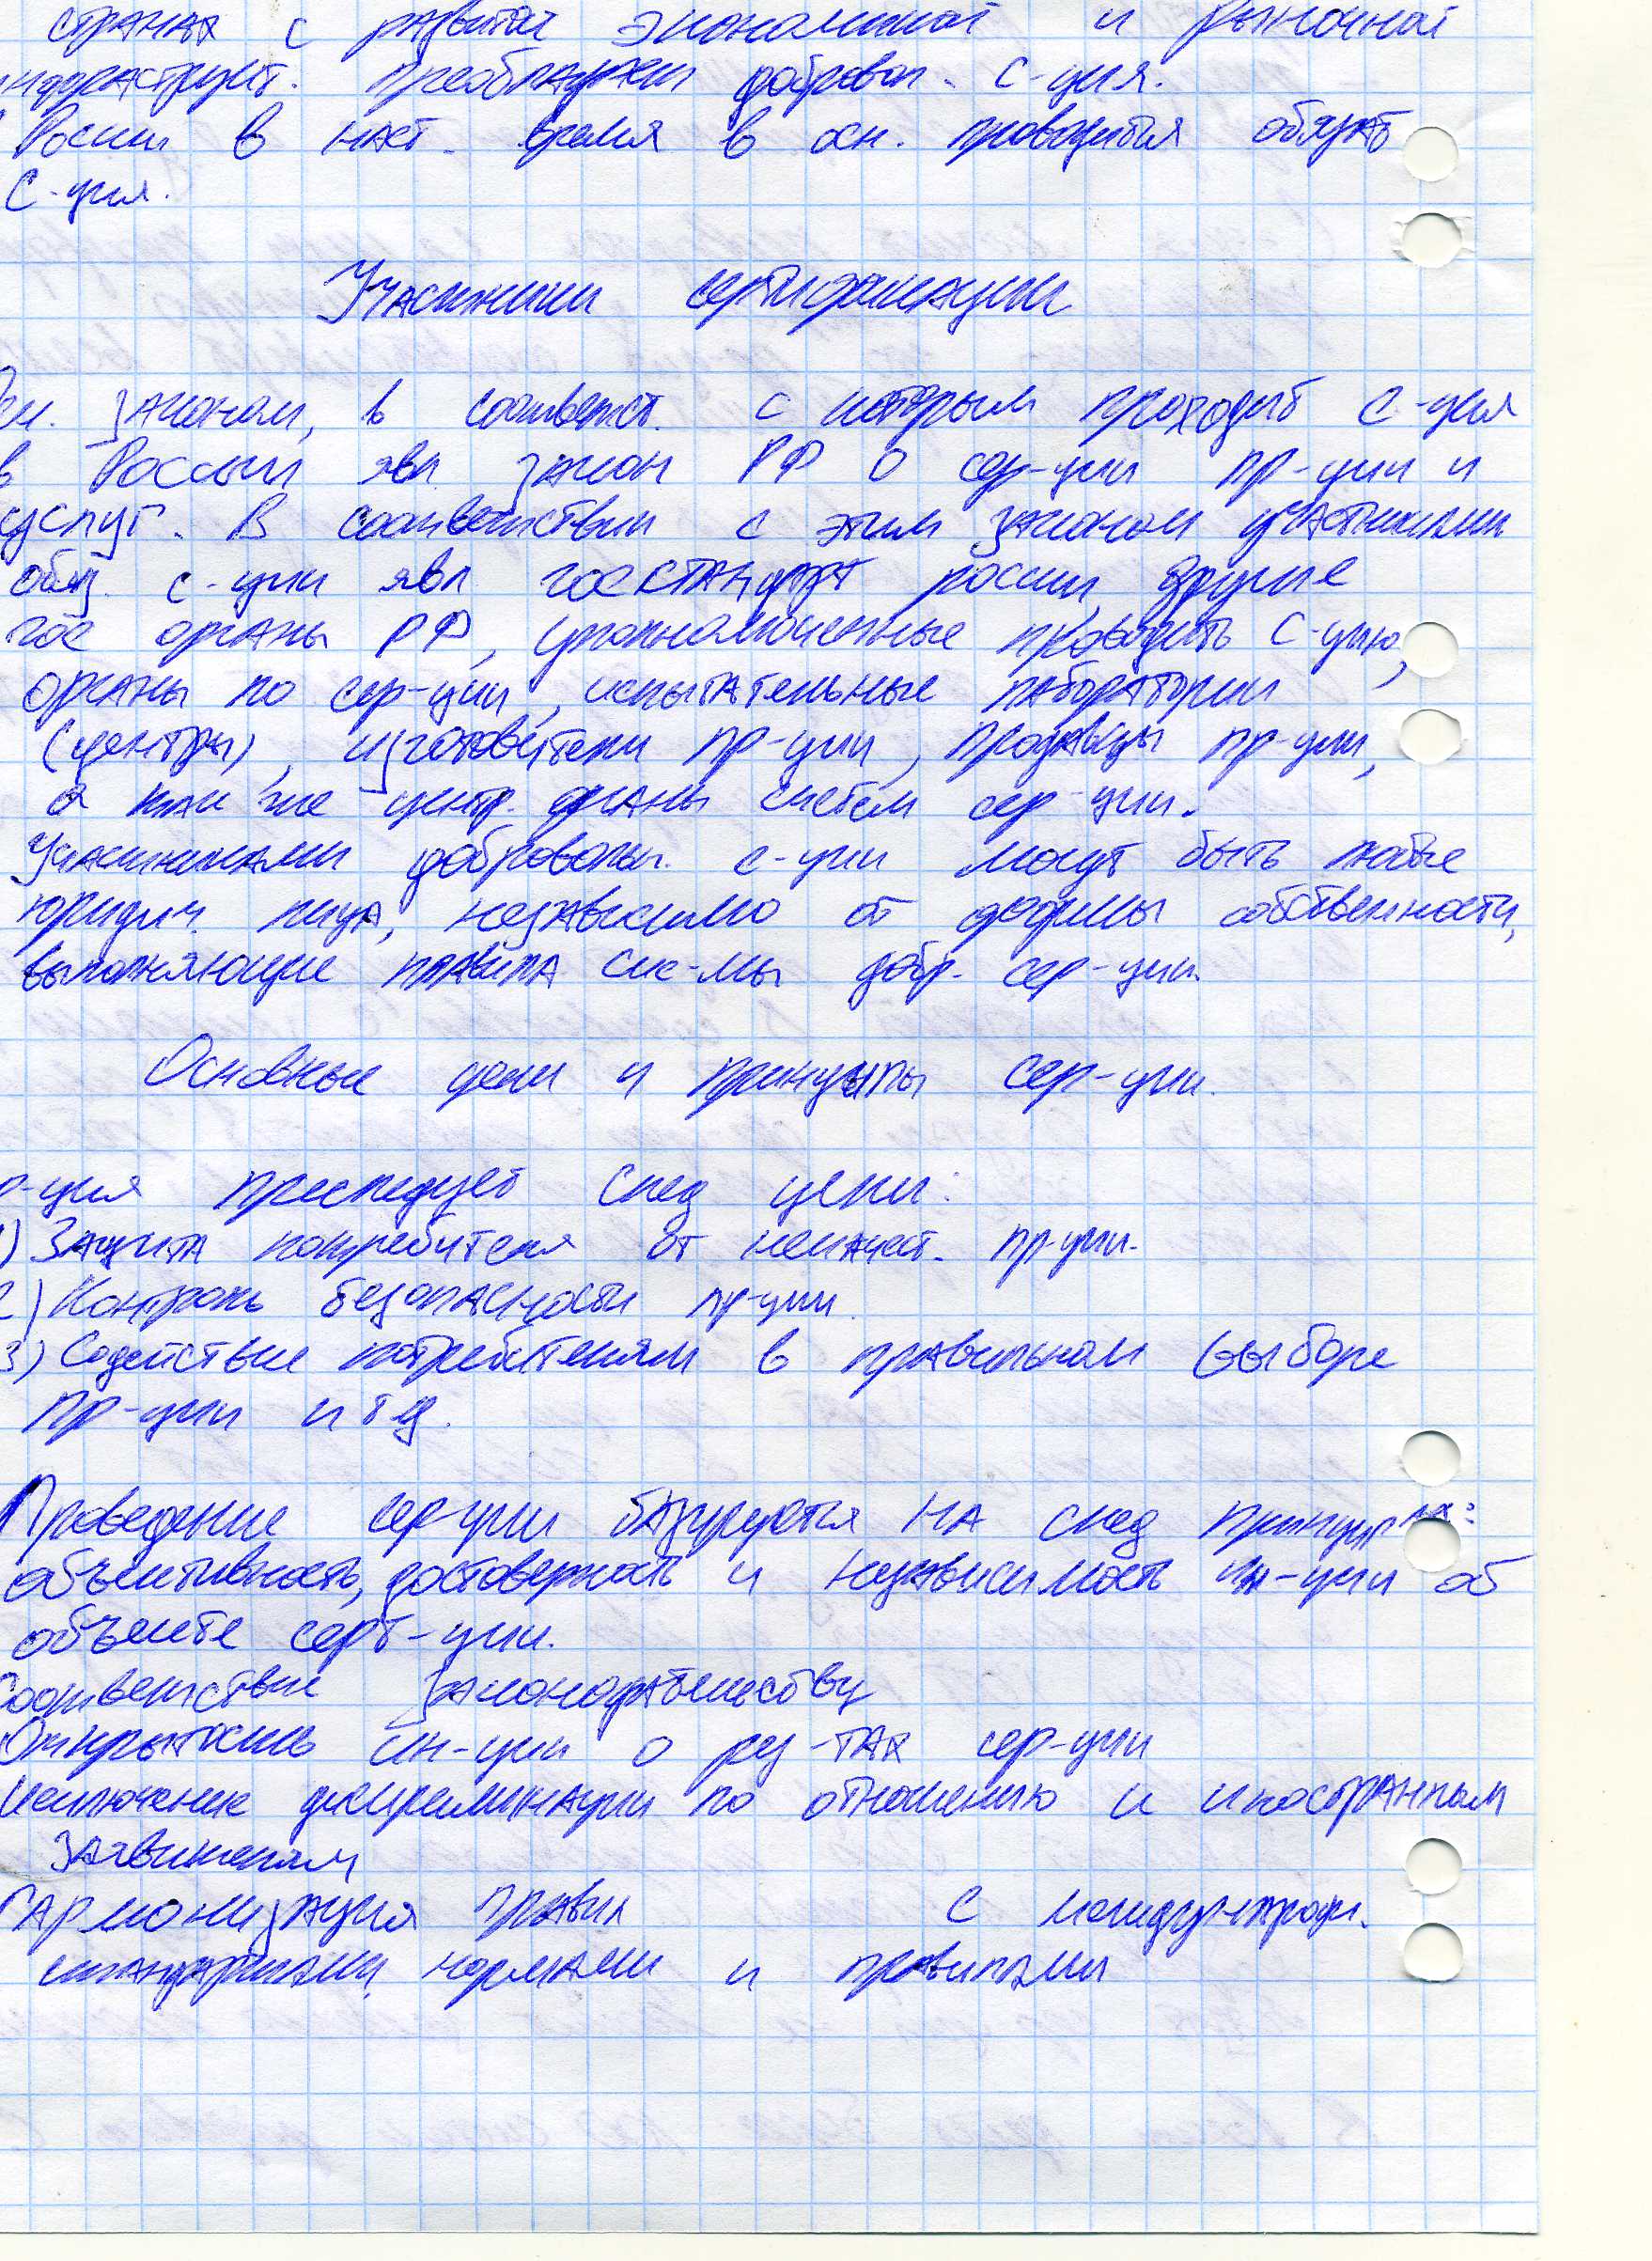 странах с развитой экономикой и рыночной
инфраструкт. преобладает добровол. с-ция.
России в наст. время в осн. проводится обязат
с-ция.
Участники сертификации
Осн. законом, в соответст. с которым проходит с-ция
в России явл закон РФ о сер-ции пр-ции и
услуг. В соответствии с этим законом участниками
обяз. с-ции явл госстандарт россии, другие
гос органы РФ, уполномоченные проводить с-цию,
органы по сер-ции, испытательные лаборатории
(центры), изготовители пр-ции, продавцы пр-ции,
а так же центр. органы систем сер-ции.
Участниками добровольн. с-ции могут быть любые
юридич. лица, независимо от формы собственности,
выполняющие правила сис-мы добр. сер-ции.
Основные цели и принципы сер-ции.
р-ция преследует след цели:
1) Защита потребителя от некачест. пр-ции.
2) Контроль безопасности пр-ции.
3) Содействие потребителям в правильном выборе
пр-ции и т д.
Проведение сер-ции базируется на след принципах:
объективность, достоверность и независимость ин-ции об
объекте серт-ции.
Соответствие законодательству
Открытость ин-ции о рез-тах сер-ции
Исключение дискриминации по отношению к иностранным
заявителям
Гармонизация правил с международн.
стандартами, нормами и правилами